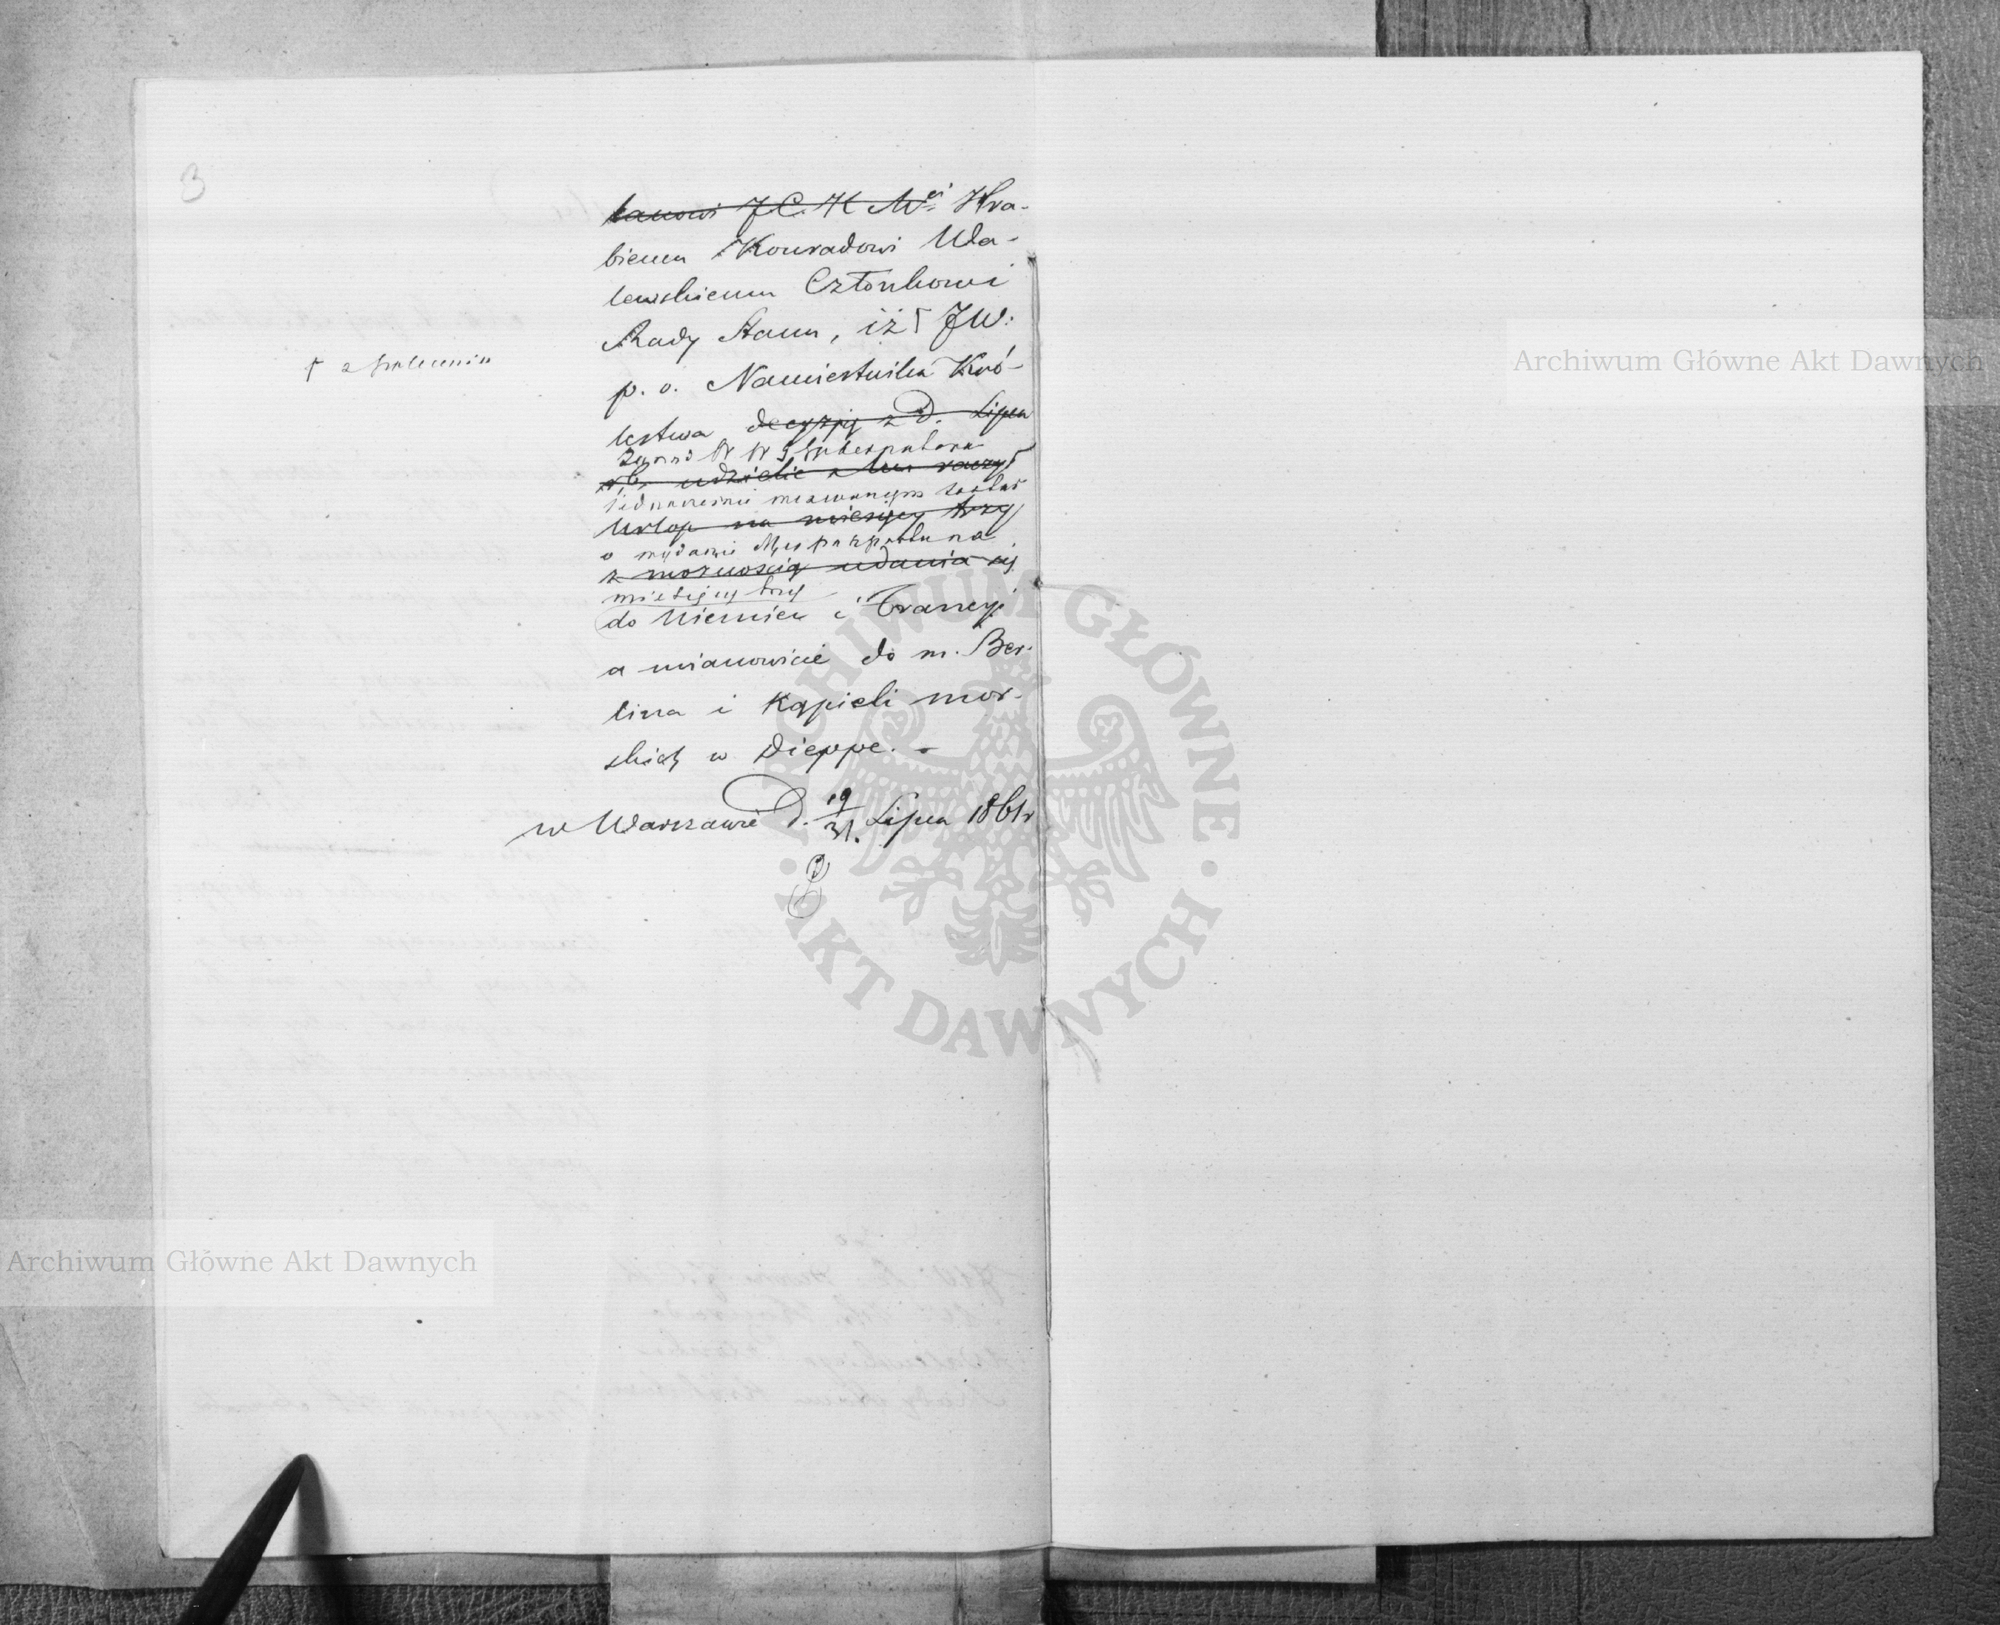 3
kanowi J. C. K Mci Hra-
biemu Konradowi Wa-
lewskiemu Członkowi
Rady Stanu, iż Γ JW:
Γ z polecenia
p. o. Namiestnika Kró-
lestwa decyzją z D. Lipca
r. b. udzielić Mu raczył
jednocześnie wezwanym został
Urlop na miesięcy trzy
o wydanie Mu paszportu na
z możnością udania się
miesięcy trzy
do Niemiec i Francyi
a mianowicie do m. Ber-
lina i Kąpieli mor-
skich w Dieppe. -
w Warszawie D. 19/31. Lipca 1861 r
Archiwum Główne Akt Dawnych
Archiwum Główne Akt Dawnych
ARCHIWUM GŁÓWNE
· AKT DAWNYCH ·